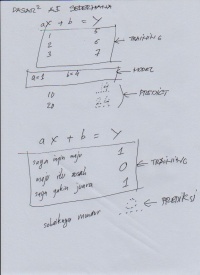 DASAR² AI SEDERHANA
ax + b = y
1 5
2 6
3 7
← TRAINING
a=1 b=4 ← MODEL
10 14
20 24
← PREDIKSI
ax + b = y
saya ingin maju 1
0
saya yakin juara 1
← TRAINING
sebaiknya mundur 0
← PREDIKSI